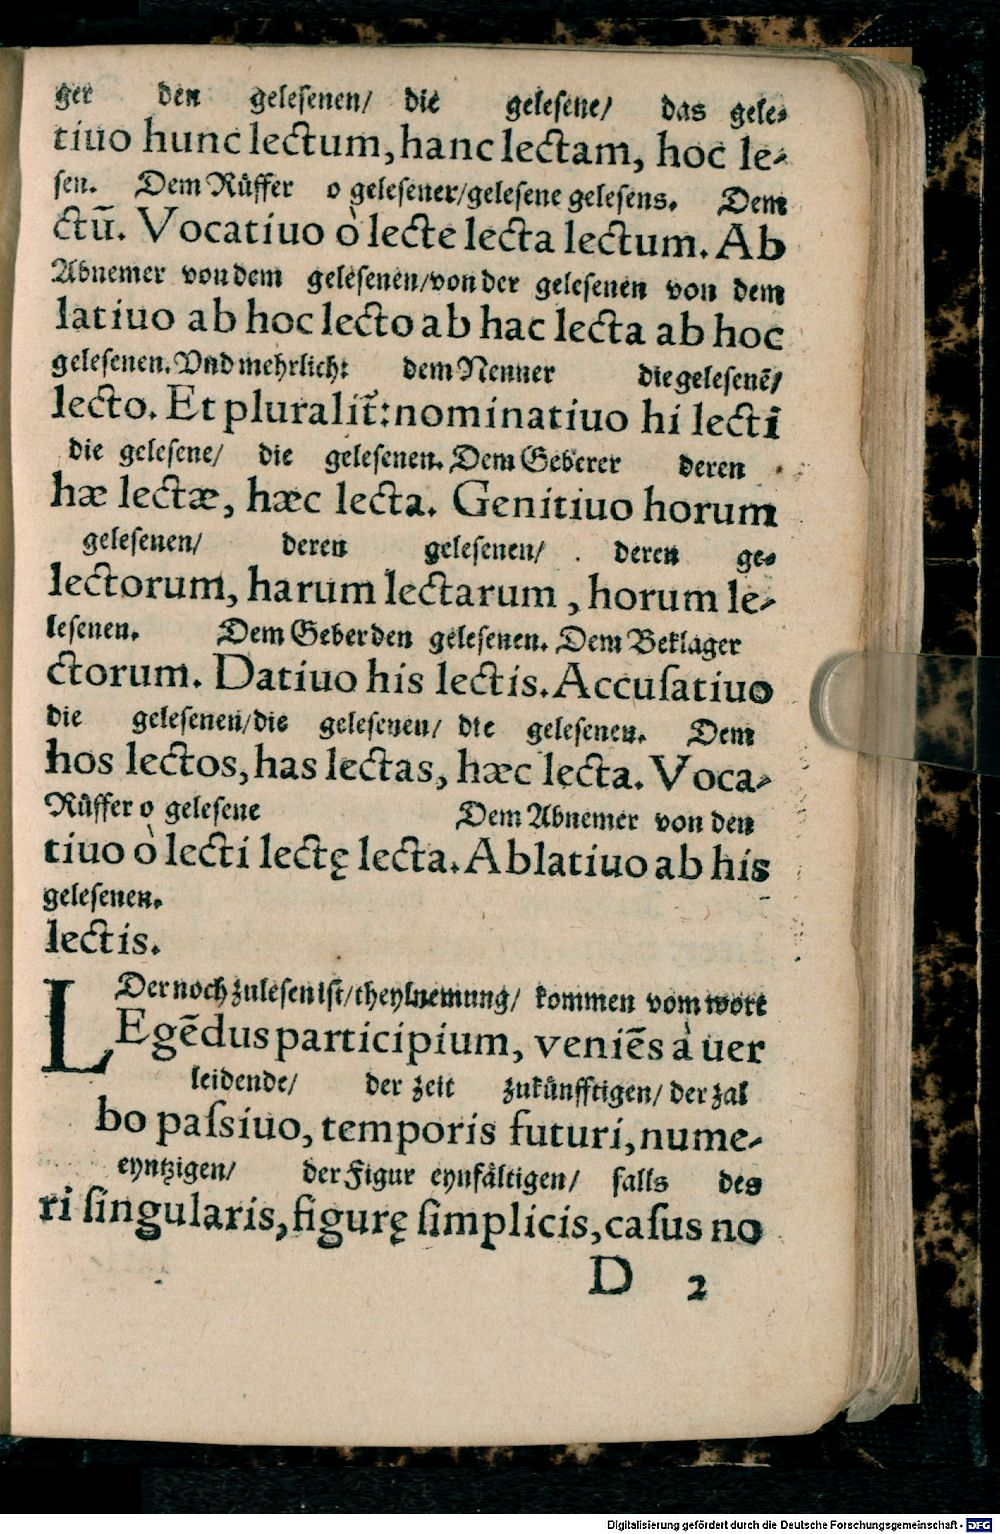 ger den geleſenen/ die geleſene/ das gele⸗
tiuo hunc lectum, hanc lectam, hoc le-
ſen. Dem Růffer o geleſener/geleſene geleſens. Dem
ctū. Vocatiuo ò lecte lecta lectum. Ab
Abnemer von dem geleſenen/von der geleſenen von dem
latiuo ab hoc lecto ab hac lecta ab hoc
geleſenen. Vnd mehrlich: dem Nenner die geleſenē/
lecto. Et pluralit̃: nominatiuo hi lecti
die geleſene/ die geleſenen. Dem Geberer deren
hæ lectæ, hæc lecta. Genitiuo horum
geleſenen/ deren geleſenen/ deren ge⸗
lectorum, harum lectarum, horum le-
leſenen. Dem Geber den geleſenen. Dem Beklager
ctorum. Datiuo his lectis. Accuſatiuo
die geleſenen/die geleſenen/ die geleſenen. Dem
hos lectos, has lectas, hæc lecta. Voca-
Růffer o geleſene Dem Abnemer von den
tiuo ò lecti lectę lecta. Ablatiuo ab his
geleſenen.
lectis.
Der noch zuleſen iſt/theylnemung/ kommen vom wort
LEgēdus participium, veniēs à uer
leidende/ der zeit zukůnfftigen/ der zal
bo paſsiuo, temporis futuri, nume-
eyntzigen/ der Figur eynfåltigen/ falls des
ri ſingularis, figurę ſimplicis, caſus no
D 2
Digitalisierung gefördert durch die Deutsche Forschungsgemeinschaft - DFG